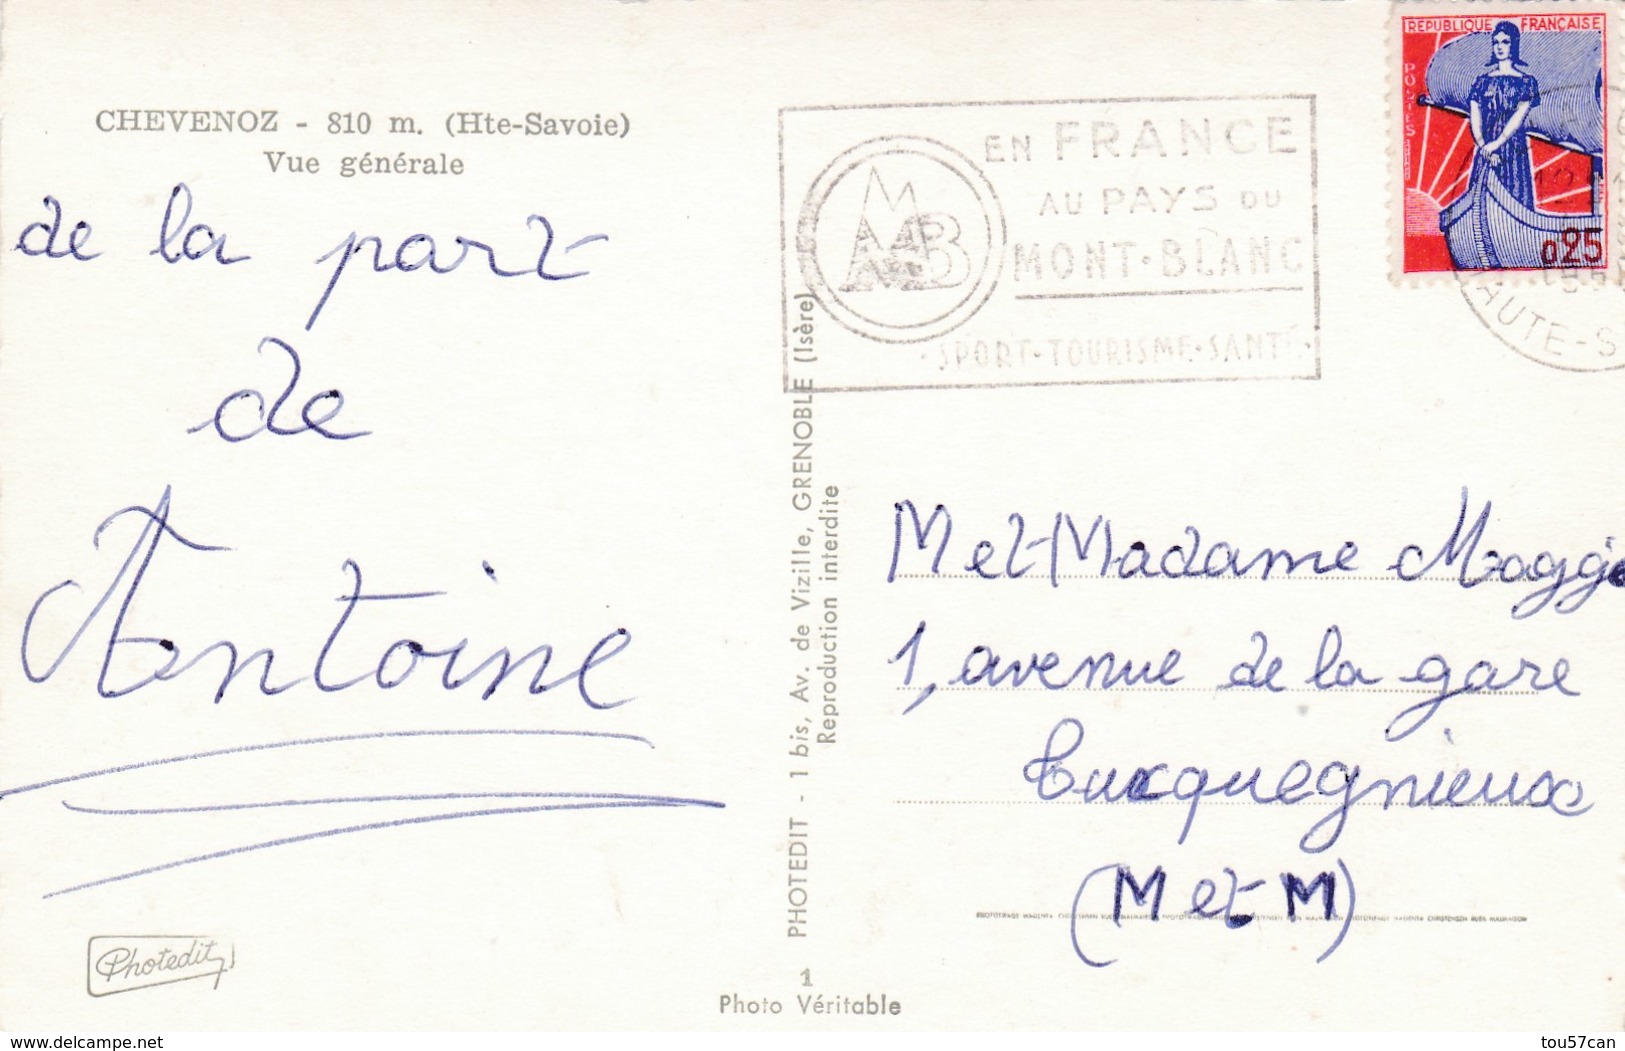 CHEVENOZ - 810 m. (Hte-Savoie)
Vue générale
de la part
de
Antoine
Photedit
PHOTEDIT - 1 bis, Av. de Vizille, GRENOBLE (Isère)
Reproduction interdite
1
Photo Véritable
EN FRANCE
AU PAYS DU
MONT-BLANC
· SPORT · TOURISME · SANTÉ ·
MB
REPUBLIQUE FRANÇAISE
POSTES
0,25
HAUTE-S
M et Madame Maggi
1, avenue de la gare
Tucquegnieux
(M et M)
www.delcampe.net
tou57can